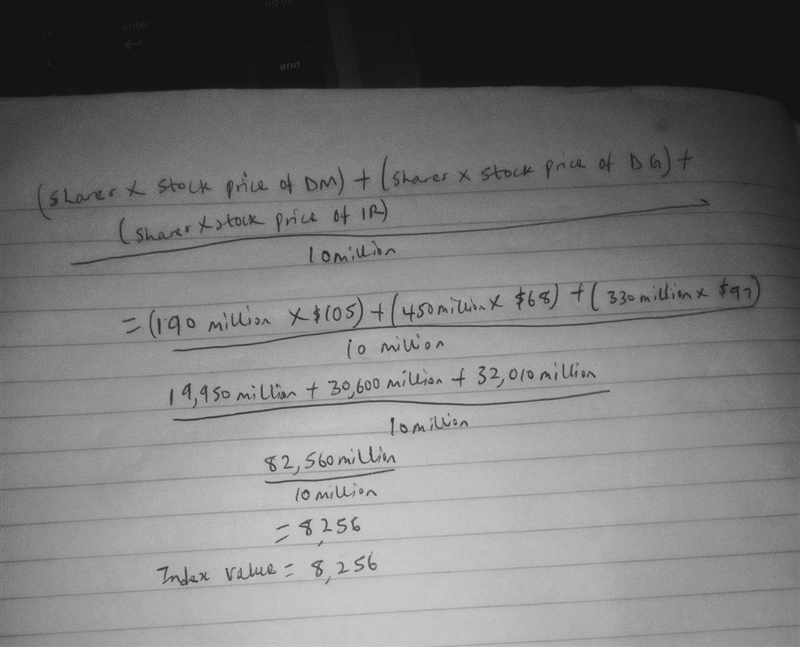 enter
end
(shares x stock price of DM) + (shares x stock price of DG) +
(shares x stock price of IR)
10 million
= (190 million x $105) + (450 million x $68) + (330 million x $97)
10 million
19,950 million + 30,600 million + 32,010 million
10 million
82,560 million
10 million
= 8,256
Index value = 8,256